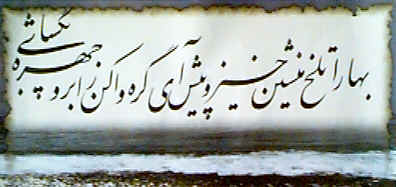 بهارا تلخ منشین خیز و پیش آی گره وا کن ز ابرو چهره بگشای